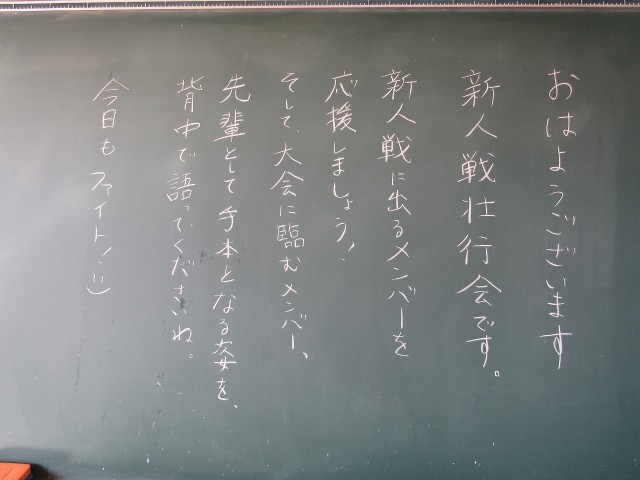 おはようございます
新人戦壮行会です。
新人戦に出るメンバーを
応援しましょう!
そして、大会に臨むメンバー、
先輩として手本となる姿を、
背中で語ってくださいね。
今日もファイト!:)